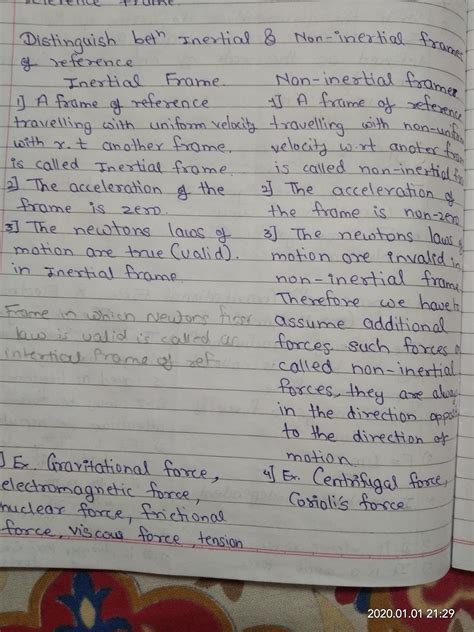 Reference Frame
Distinguish betn Inertial & Non-inertial frames
of reference
Inertial Frame.
1) A frame of reference
travelling with uniform velocity
with r.t another frame.
is called Inertial frame.
2) The acceleration of the
frame is zero.
3) The newtons laws of
motion are true (valid).
in Inertial frame
Frame in which Newtons first
law is valid is called as
intertial frame of ref-
] Ex. Gravitational force,
electromagnetic force,
nuclear force, frictional
force, viscous force, tension
Non-inertial frames
1] A frame of reference
travelling with non-unifo
velocity w.r.t anoter fra
is called non-inertial fra
2] The acceleration of
the frame is non-zero
3] The newtons laws of
motion are invalid in
non-inertial frame
Therefore we have to
assume additional
forces such forces a
called non-inertial
forces, they are alway
in the direction oppos
to the direction of
motion
4] Ex. Centrifugal force,
Corioli's force
2020.01.01 21:29